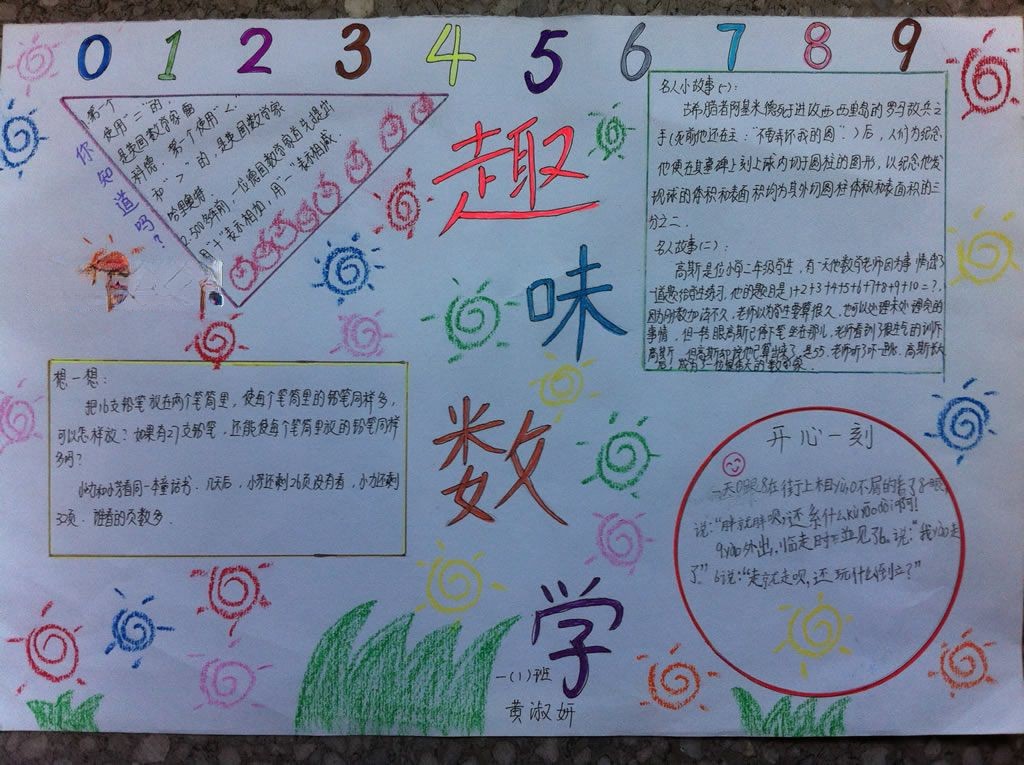 0 1 2 3 4 5 6 7 8 9
你知道吗？
第一个
使用"="的，
是英国数学家雷
科德，第一个使用"<"
和">"的，是英国数学家
哈里奥特
2.500多年前，一位德国数学家首先提出
用"+"表示相加，用"一"表示相减．
趣味数学
名人小故事(一)：
古希腊者阿基米德死于进攻西西里岛的罗马敌兵之
手(死前他还在主："不要弄坏我的圆")后，人们为纪念
他便在其墓碑上刻上球内切于圆柱的图形，以纪念他发
现球的体积和表面积均为其外切圆柱体积和表面积的三
分之二．
名人故事(二)：
高斯是位小学二年级学生，有一天他数学老师因为事情
一道题给学生练习，他的题目是1+2+3+4+5+6+7+8+9+10=?，
因为加法不久，老师以为学生要算很久，也可以处理未处理完的
事情，但一转眼高斯已停下笔坐在那儿，老师看到了很生气的训斥
高斯，但高斯却说他已算出来了，是55，老师听了吓一跳，高斯长大
后，成为了一位很伟大的数学家．
想一想：
把16支铅笔放在两个笔筒里，使每个笔筒里的铅笔同样多，
可以怎样放？如果有27支铅笔，还能使每个笔筒里放的铅笔同样
多吗？
小力和小芳看同一本童话书．几天后，小芳还剩26页没有看，小力还剩
32页．谁看的页数多．
开心一刻
一天0跟8在街上相yù，0不屑的看了8一眼，
说："胖就胖呗，还系什么kù yāo dài啊！
9yào外出，临走时下遇见了6。说："我yào走
了"6说："走就走呗，还玩什么倒立？"
一(1)班
黄淑妍